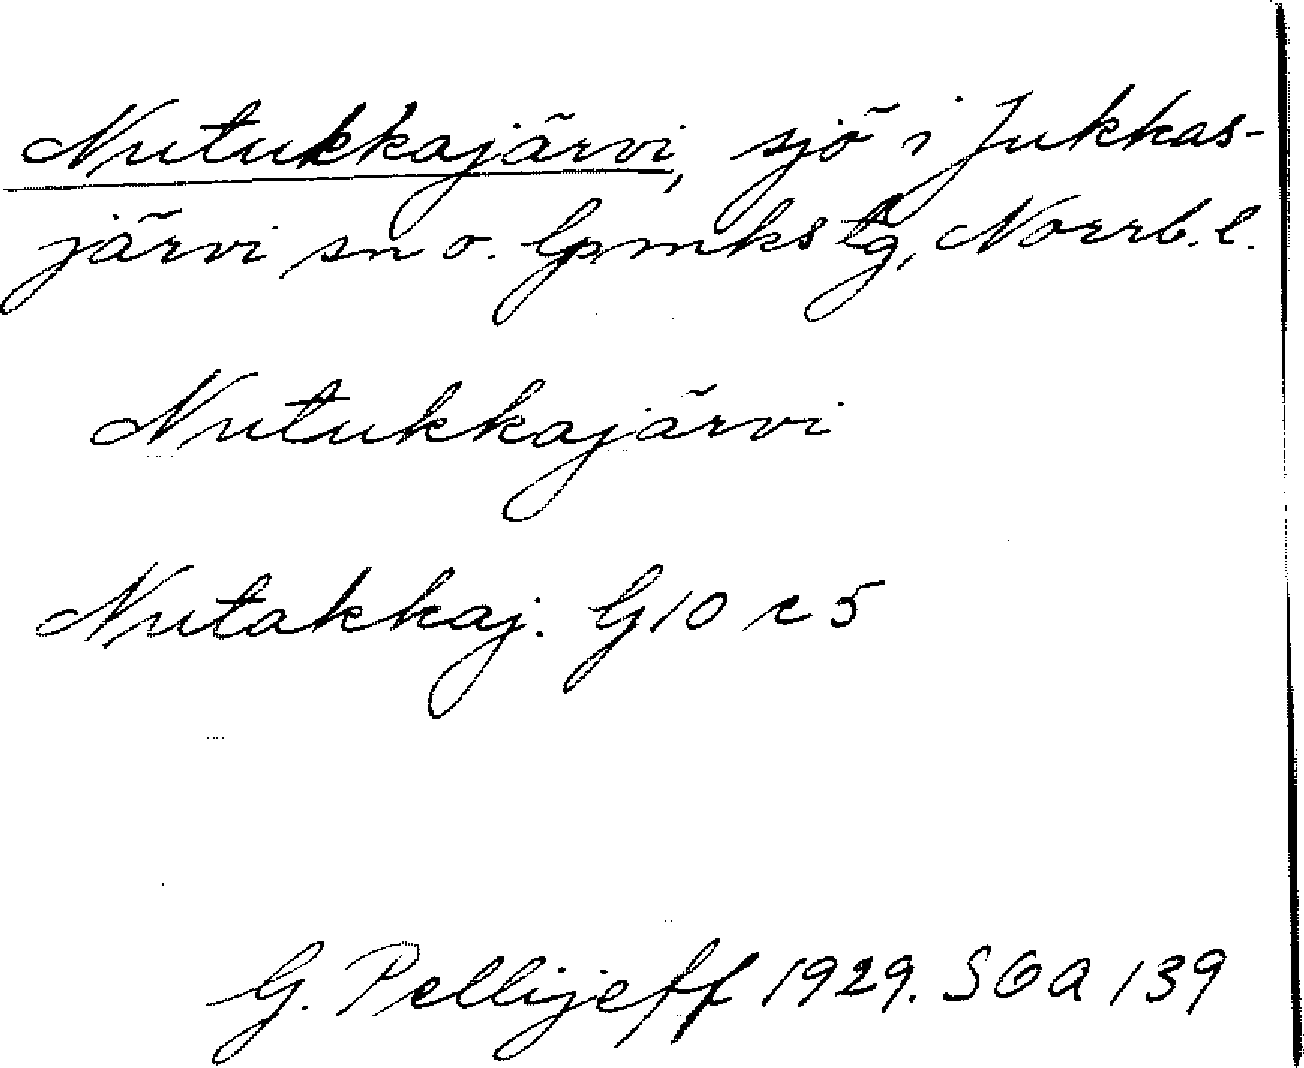 Nutukkajärvi, sjö i Jukkas-
järvi sn o. lpmks tg, Norrb. l.
Nutukkajärvi
Nutakkaj. G10 c5
G. Pellijeff 1929. SOA 139